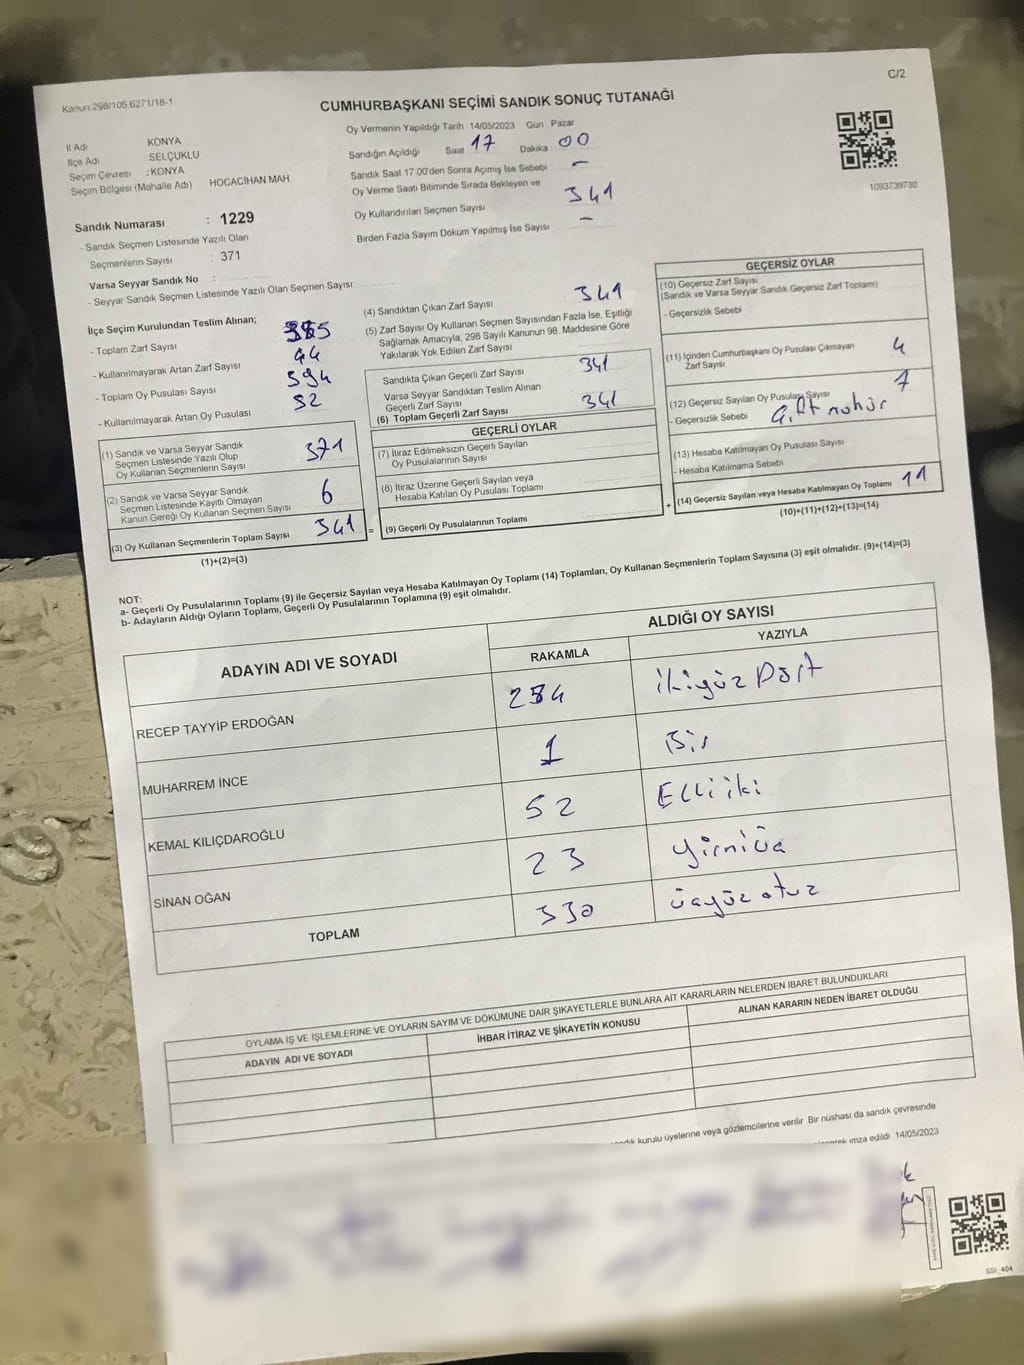 C/2
Kanun:298/105.6271/18-1
CUMHURBAŞKANI SEÇİMİ SANDIK SONUÇ TUTANAĞI
İl Adı KONYA
İlçe Adı SELÇUKLU
Seçim Çevresi : KONYA
Seçim Bölgesi (Mahalle Adı) HOCACİHAN MAH.
Oy Vermenin Yapıldığı Tarih 14/05/2023 Gün : Pazar
Sandığın Açıldığı Saat 17 Dakika 00
Sandık Saat 17 00'den Sonra Açımış İse Sebebi –
Oy Verme Saati Bitiminde Sırada Bekleyen ve
Oy Kullandırılan Seçmen Sayısı 341
Birden Fazla Sayım Döküm Yapılmış İse Sayısı –
1093739730
Sandık Numarası : 1229
- Sandık Seçmen Listesinde Yazılı Olan
Seçmenlerin Sayısı : 371
Varsa Seyyar Sandık No :
- Seyyar Sandık Seçmen Listesinde Yazılı Olan Seçmen Sayısı:
İlçe Seçim Kurulundan Teslim Alınan;
- Toplam Zarf Sayısı 385
- Kullanılmayarak Artan Zarf Sayısı 44
- Toplam Oy Pusulası Sayısı 394
- Kullanılmayarak Artan Oy Pusulası 52
(1) Sandık ve Varsa Seyyar Sandık
Seçmen Listesinde Yazılı Olup
Oy Kullanan Seçmenlerin Sayısı 371
(2) Sandık ve Varsa Seyyar Sandık
Seçmen Listesinde Kayıtlı Olmayan
Kanun Gereği Oy Kullanan Seçmen Sayısı 6
(3) Oy Kullanan Seçmenlerin Toplam Sayısı 341
(1)+(2)=(3)
(4) Sandıktan Çıkan Zarf Sayısı 341
(5) Zarf Sayısı Oy Kullanan Seçmen Sayısından Fazla İse, Eşitliği
Sağlamak Amacıyla; 298 Sayılı Kanunun 98. Maddesine Göre
Yakılarak Yok Edilen Zarf Sayısı
Sandıkta Çıkan Geçerli Zarf Sayısı 341
Varsa Seyyar Sandıktan Teslim Alınan
Geçerli Zarf Sayısı
(6) Toplam Geçerli Zarf Sayısı 341
GEÇERLİ OYLAR
(7) İtiraz Edilmeksizin Geçerli Sayılan
Oy Pusulalarının Sayısı
(8) İtiraz Üzerine Geçerli Sayılan veya
Hesaba Katılan Oy Pusulası Toplamı
= (9) Geçerli Oy Pusulalarının Toplamı
GEÇERSİZ OYLAR
(10) Geçersiz Zarf Sayısı
(Sandık ve Varsa Seyyar Sandık Geçersiz Zarf Toplamı)
- Geçersizlik Sebebi :
(11) İçinden Cumhurbaşkanı Oy Pusulası Çıkmayan
Zarf Sayısı 4
(12) Geçersiz Sayılan Oy Pusulası Sayısı 7
- Geçersizlik Sebebi Çift mühür
(13) Hesaba Katılmayan Oy Pusulası Sayısı
- Hesaba Katılmama Sebebi
+ (14) Geçersiz Sayılan veya Hesaba Katılmayan Oy Toplamı 11
(10)+(11)+(12)+(13)=(14)
NOT:
a- Geçerli Oy Pusulalarının Toplamı (9) ile Geçersiz Sayılan veya Hesaba Katılmayan Oy Toplamı (14) Toplamları, Oy Kullanan Seçmenlerin Toplam Sayısına (3) eşit olmalıdır. (9)+(14)=(3)
b- Adayların Aldığı Oyların Toplamı, Geçerli Oy Pusulalarının Toplamına (9) eşit olmalıdır.
ADAYIN ADI VE SOYADI
ALDIĞI OY SAYISI
RAKAMLA YAZIYLA
RECEP TAYYİP ERDOĞAN 254 ikiyüz Dört
MUHARREM İNCE 1 Bir
KEMAL KILIÇDAROĞLU 52 Elli iki
SİNAN OĞAN 23 Yirmi üç
TOPLAM 330 üçyüz otuz
OYLAMA İŞ VE İŞLEMLERİNE VE OYLARIN SAYIM VE DÖKÜMÜNE DAİR ŞİKAYETLERLE BUNLARA AİT KARARLARIN NELERDEN İBARET BULUNDUKLARI
ADAYIN ADI VE SOYADI İHBAR İTİRAZ VE ŞİKAYETİN KONUSU ALINAN KARARIN NEDEN İBARET OLDUĞU
kurulu üyelerine veya gözlemcilerine verilir Bir nüshası da sandık çevresinde
imza edildi 14/05/2023
SSI_404